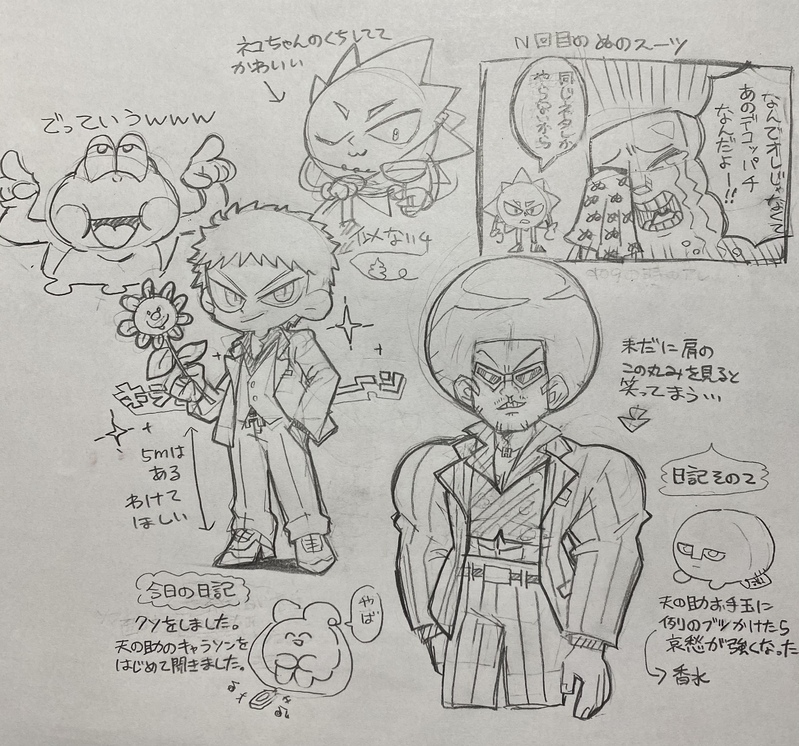 ネコちゃんのくちしてて
かわいい
でっていうwww
似ない4
N回目のぬのスーツ
同じネタしか
やらないから
なんでオレじゃなくて
あのデコッパチ
なんだよー!!
ぬ ぬ ぬ
5mは
ある
わけて
ほしい
未だに肩の
この丸みを見ると
笑ってまう…
日記その2
天の助お手玉に
例のブツかけたら
哀愁が強くなった
香水
今日の日記
クソをしました。
天の助のキャラソンを
はじめて聞きました。
やば